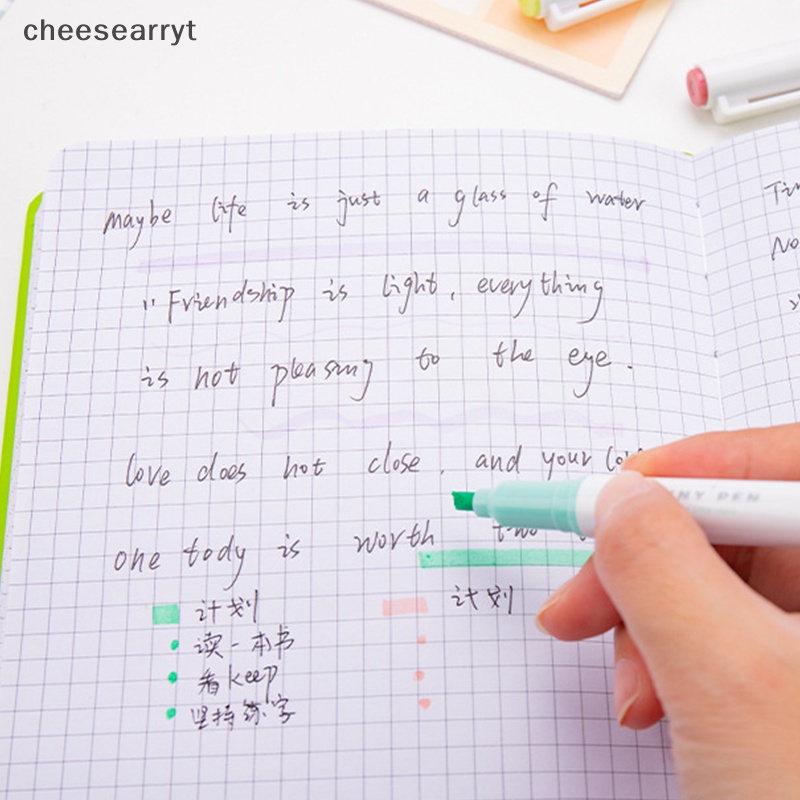 cheesearryt
maybe life is just a glass of water
"Friendship is light, everything
is not pleasing to the eye.
love does not close, and your
one tody is worth two
计划 计划
读一本书
看keep
坚持练字
NY PEN